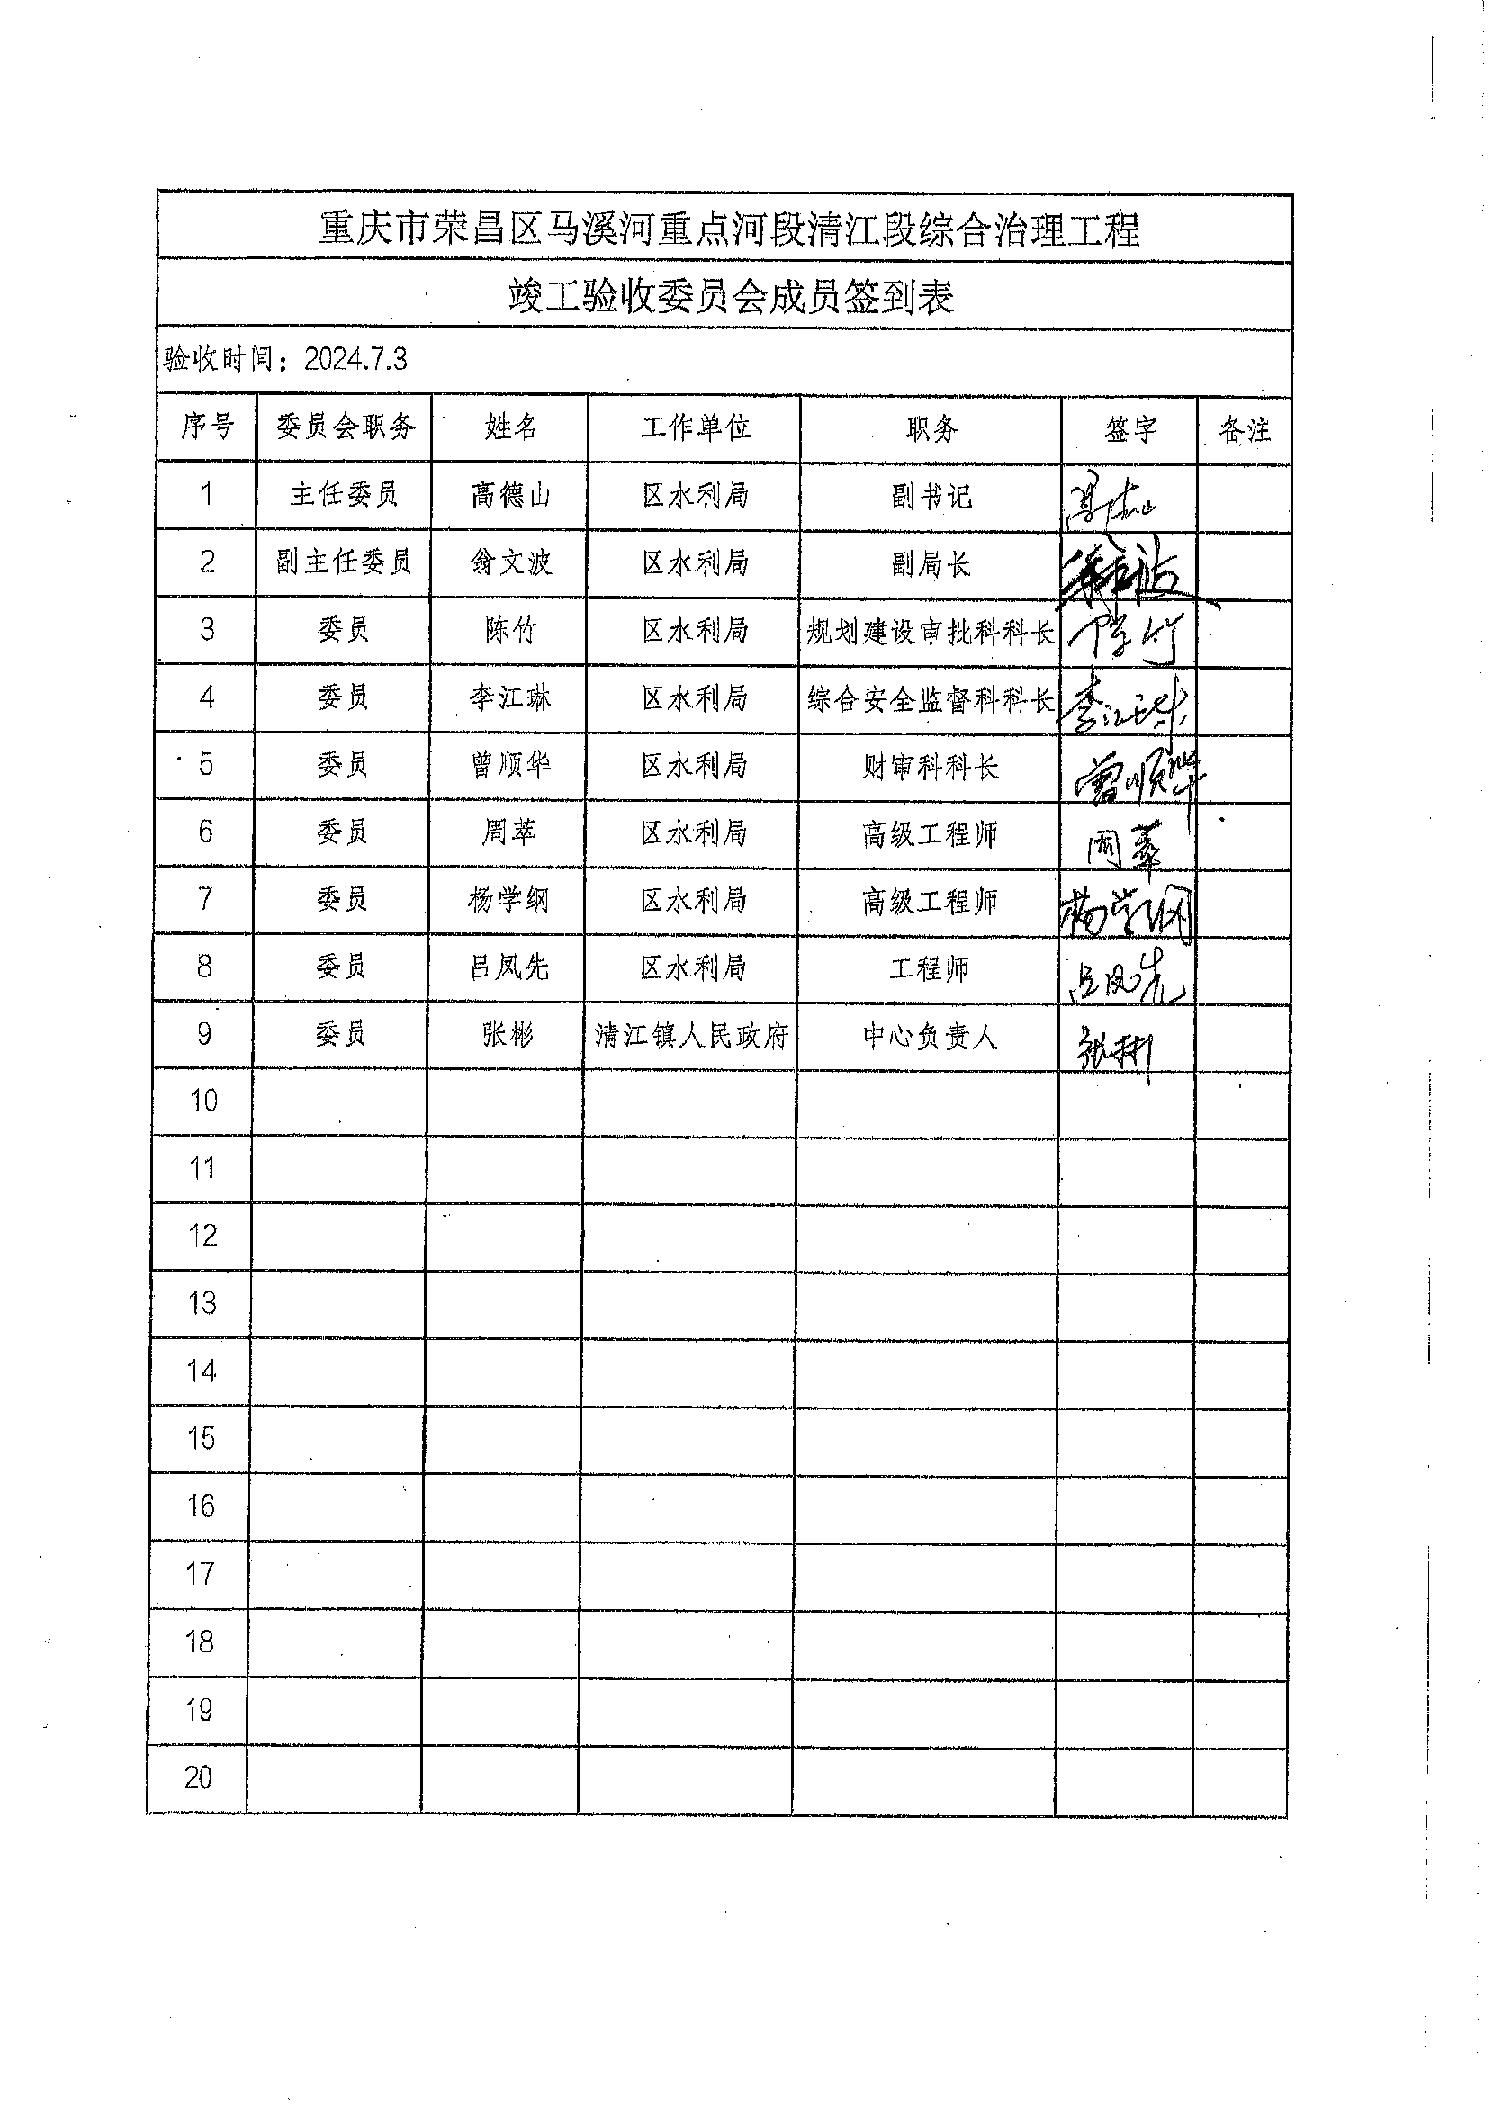 重庆市荣昌区马溪河重点河段清江段综合治理工程
竣工验收委员会成员签到表
验收时间：2024.7.3
序号 委员会职务 姓名 工作单位 职务 签字 备注
1 主任委员 高德山 区水利局 副书记 高德山
2 副主任委员 翁文波 区水利局 副局长
3 委员 陈竹 区水利局 规划建设审批科科长 陈竹
4 委员 李江琳 区水利局 综合安全监督科科长 李江琳
5 委员 曾顺华 区水利局 财审科科长 曾顺华
6 委员 周萃 区水利局 高级工程师 周萃
7 委员 杨学纲 区水利局 高级工程师 杨学纲
8 委员 吕凤先 区水利局 工程师 吕凤先
9 委员 张彬 清江镇人民政府 中心负责人 张彬
10
11
12
13
14
15
16
17
18
19
20